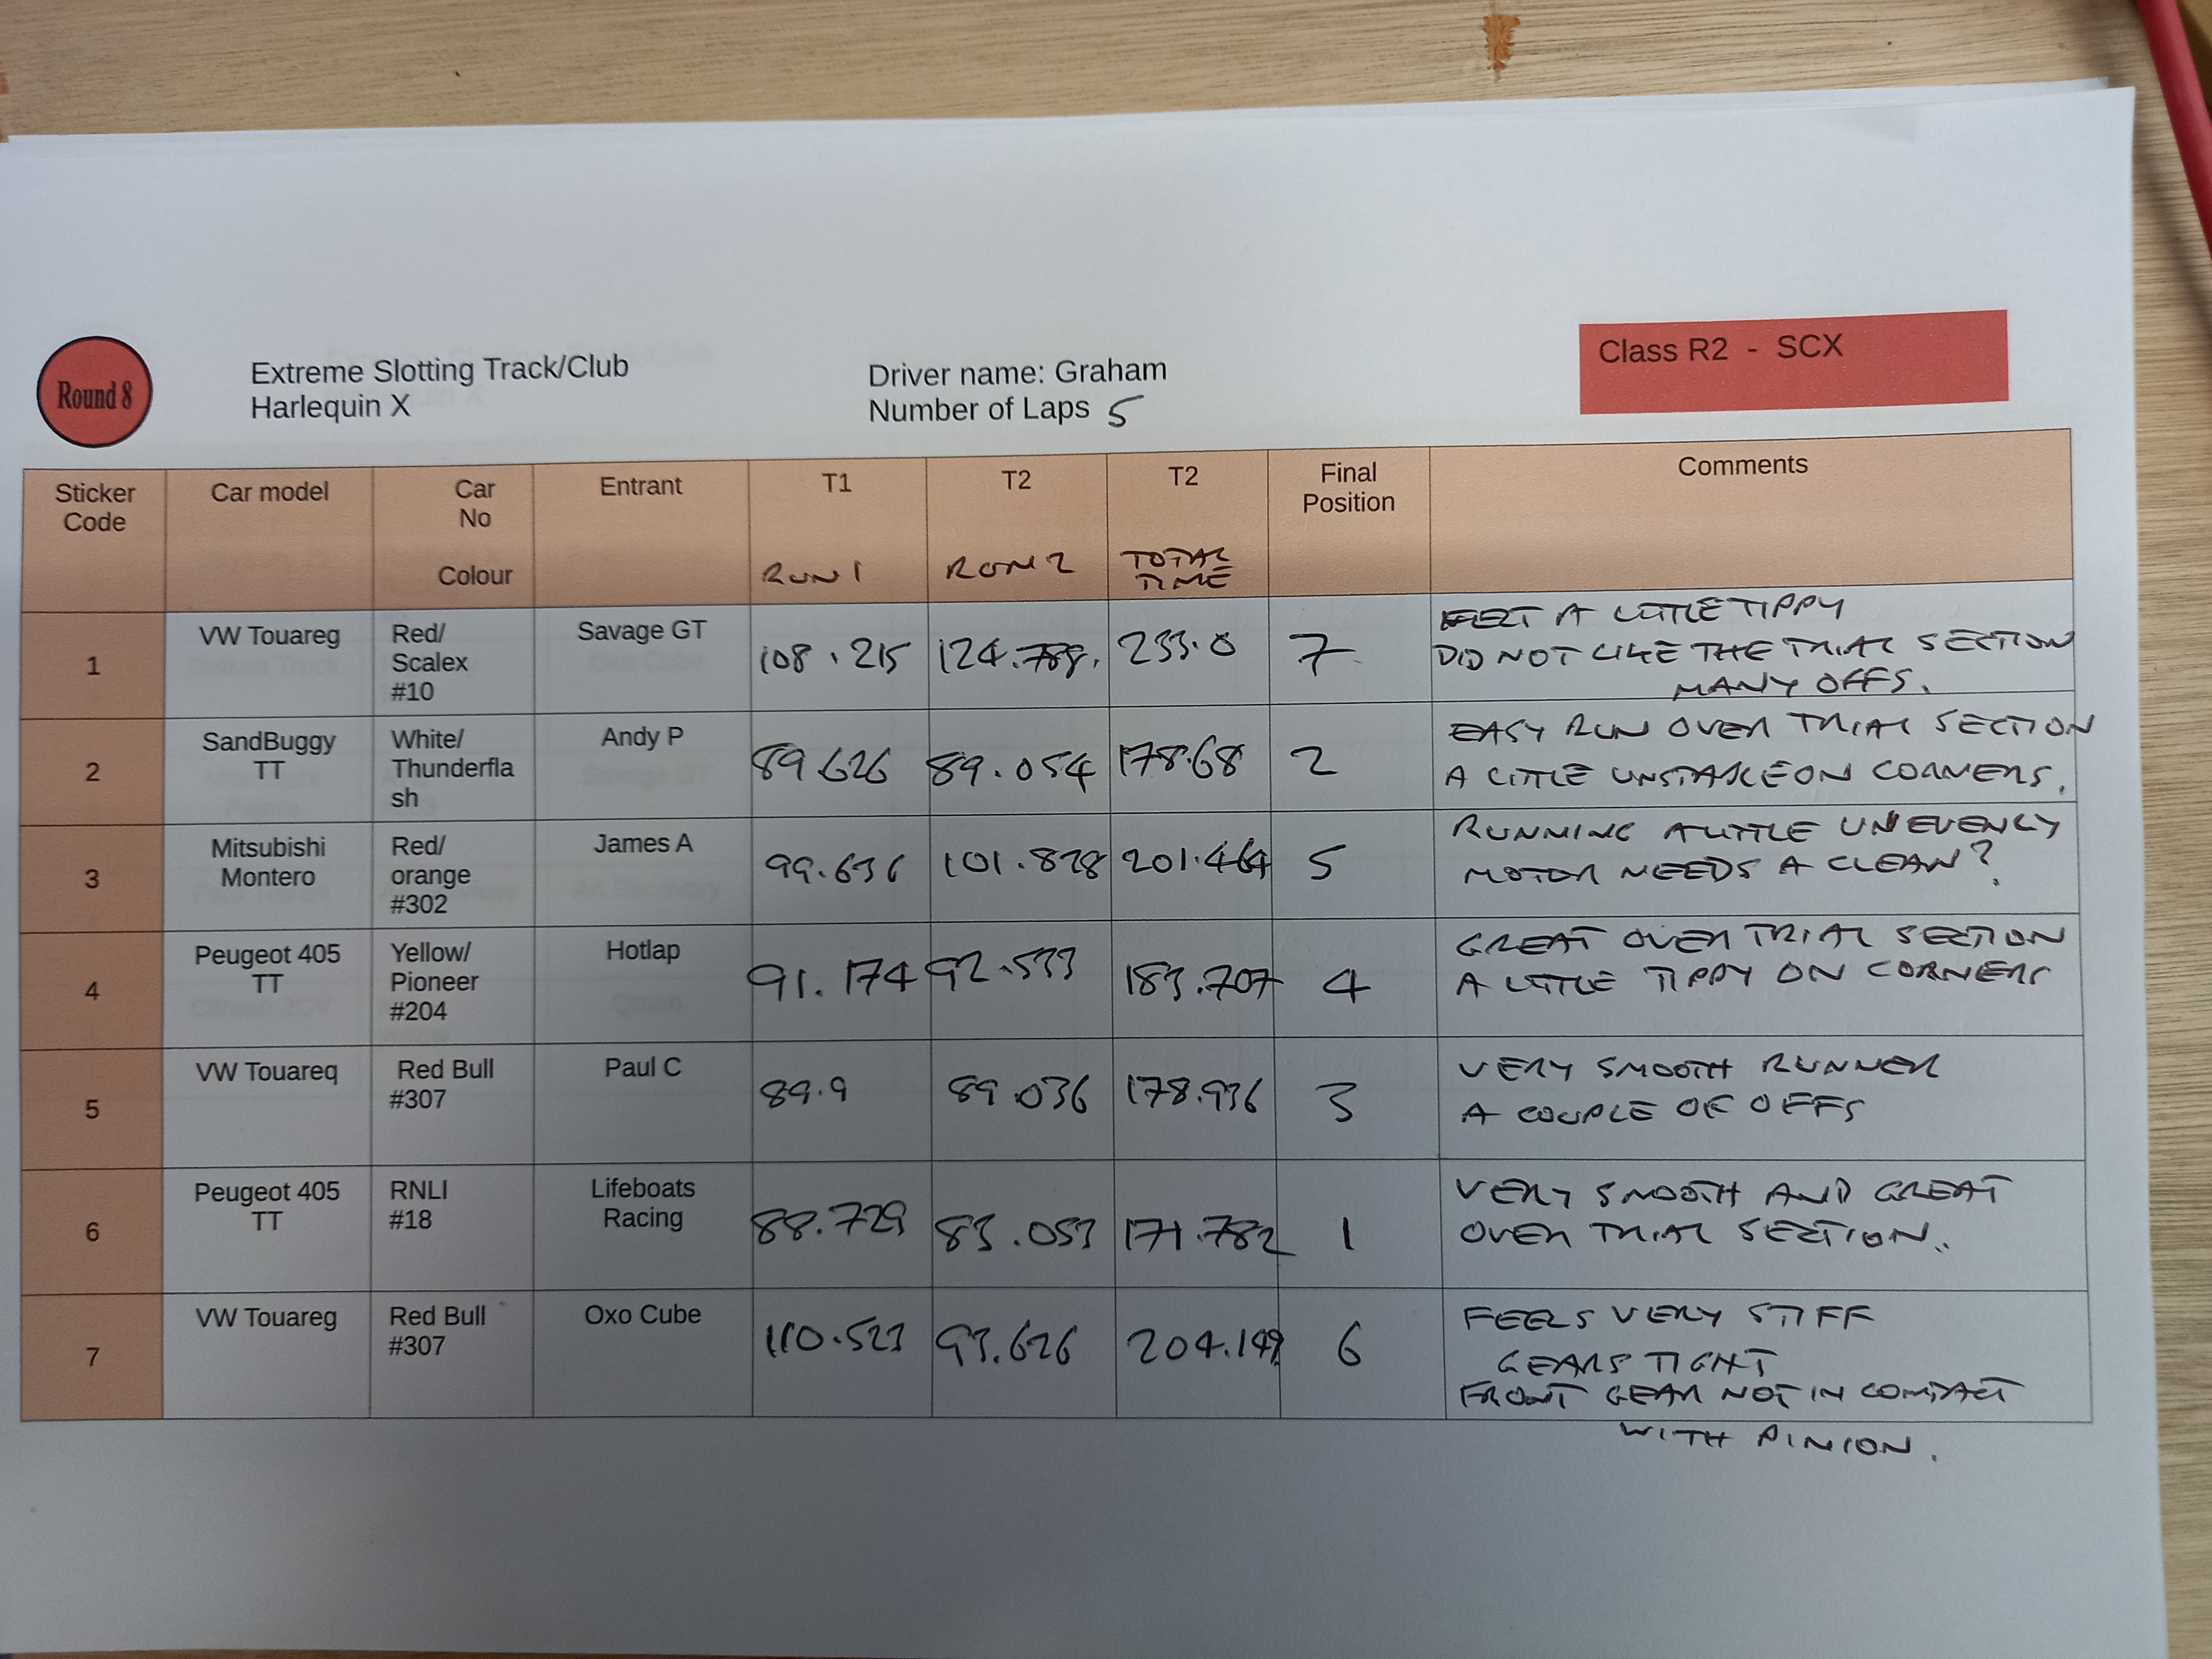 Round 8
Extreme Slotting Track/Club
Harlequin X
Driver name: Graham
Number of Laps 5
Class R2 - SCX
Sticker Code Car model Car No Colour Entrant T1 RUN 1 T2 RUN 2 T2 TOTAL TIME Final Position Comments
1 VW Touareg Red/ Scalex #10 Savage GT 108.215 124.788. 233.0 7
FELT A LITTLE TIPPY
DID NOT LIKE THE TRIAL SECTION
MANY OFFS.
2 SandBuggy TT White/ Thunderfla sh Andy P 89.626 89.054 178.68 2
EASY RUN OVER TRIAL SECTION
A LITTLE UNSTABLE ON CORNERS.
3 Mitsubishi Montero Red/ orange #302 James A 99.636 101.828 201.464 5
RUNNING A LITTLE UNEVENLY
MOTOR NEEDS A CLEAN?
4 Peugeot 405 TT Yellow/ Pioneer #204 Hotlap 91.174 92.533 183.707 4
GREAT OVER TRIAL SECTION
A LITTLE TIPPY ON CORNERS
5 VW Touareq Red Bull #307 Paul C 89.9 89.036 178.936 3
VERY SMOOTH RUNNER
A COUPLE OF OFFS
6 Peugeot 405 TT RNLI #18 Lifeboats Racing 88.729 83.053 171.782 1
VERY SMOOTH AND GREAT
OVER TRIAL SECTION..
7 VW Touareg Red Bull #307 Oxo Cube 110.523 93.626 204.149 6
FEELS VERY STIFF
GEARS TIGHT
FRONT GEAR NOT IN CONTACT
WITH PINION.